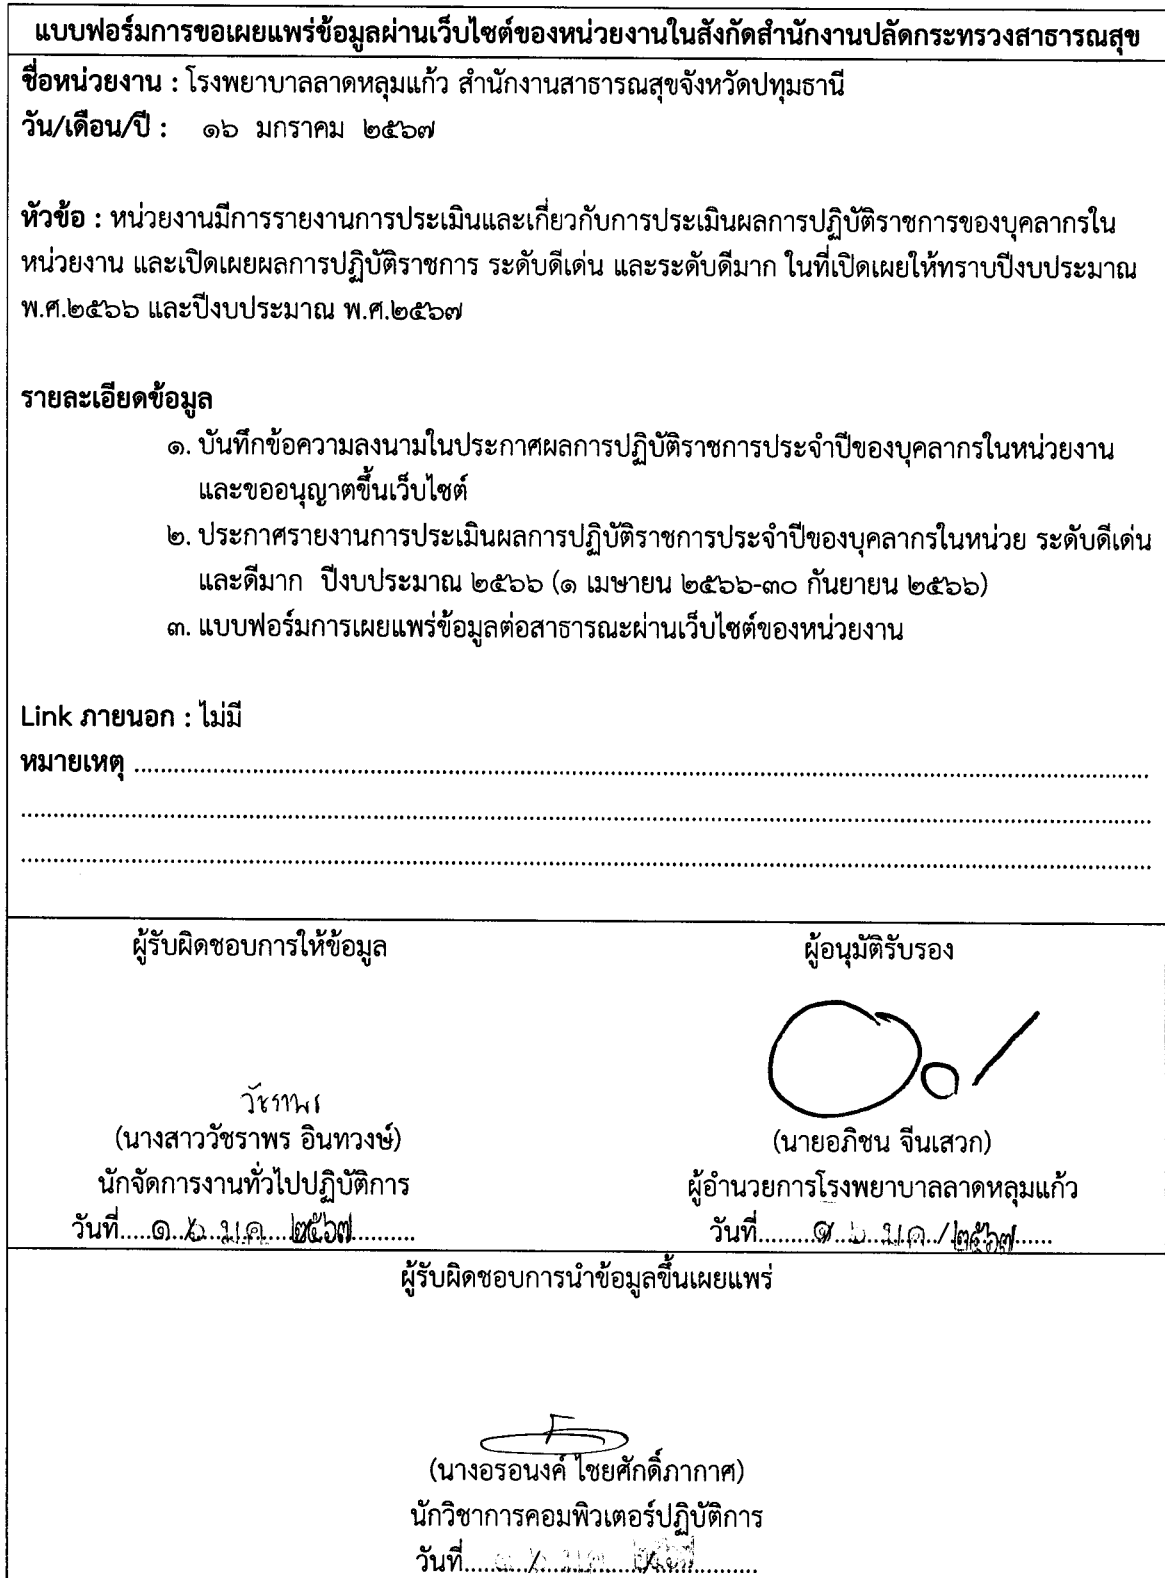 แบบฟอร์มการขอเผยแพร่ข้อมูลผ่านเว็บไซต์ของหน่วยงานในสังกัดสำนักงานปลัดกระทรวงสาธารณสุข
ชื่อหน่วยงาน : โรงพยาบาลลาดหลุมแก้ว สำนักงานสาธารณสุขจังหวัดปทุมธานี
วัน/เดือน/ปี : ๑๖ มกราคม ๒๕๖๗
หัวข้อ : หน่วยงานมีการรายงานการประเมินและเกี่ยวกับการประเมินผลการปฏิบัติราชการของบุคลากรใน
หน่วยงาน และเปิดเผยผลการปฏิบัติราชการ ระดับดีเด่น และระดับดีมาก ในที่เปิดเผยให้ทราบปีงบประมาณ
พ.ศ.๒๕๖๖ และปีงบประมาณ พ.ศ.๒๕๖๗
รายละเอียดข้อมูล
๑. บันทึกข้อความลงนามในประกาศผลการปฏิบัติราชการประจำปีของบุคลากรในหน่วยงาน
และขออนุญาตขึ้นเว็บไซต์
๒. ประกาศรายงานการประเมินผลการปฏิบัติราชการประจำปีของบุคลากรในหน่วย ระดับดีเด่น
และดีมาก ปีงบประมาณ ๒๕๖๖ (๑ เมษายน ๒๕๖๖-๓๐ กันยายน ๒๕๖๖)
๓. แบบฟอร์มการเผยแพร่ข้อมูลต่อสาธารณะผ่านเว็บไซต์ของหน่วยงาน
Link ภายนอก : ไม่มี
หมายเหตุ
ผู้รับผิดชอบการให้ข้อมูล
วัชราพร
(นางสาววัชราพร อินทวงษ์)
นักจัดการงานทั่วไปปฏิบัติการ
วันที่ ๑๖ ม.ค. ๒๕๖๗
ผู้อนุมัติรับรอง
(นายอภิชน จีนเสวก)
ผู้อำนวยการโรงพยาบาลลาดหลุมแก้ว
วันที่ ๑๖ ม.ค./๒๕๖๗
ผู้รับผิดชอบการนำข้อมูลขึ้นเผยแพร่
(นางอรอนงค์ ไชยศักดิ์ภากาศ)
นักวิชาการคอมพิวเตอร์ปฏิบัติการ
วันที่